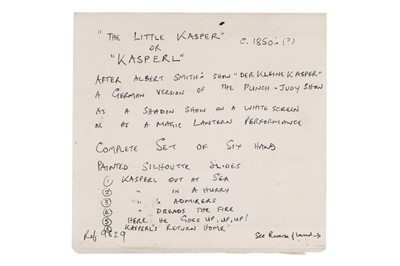 "THE LITTLE KASPER"
OR C. 1850's (?)
"KASPERL"
AFTER ALBERT SMITH'S SHOW "DER KLEINE KASPER"
A GERMAN VERSION OF THE PUNCH - JUDY SHOW
AS A SHADOW SHOW ON A WHITE SCREEN
OR AS A MAGIC LANTERN PERFORMANCE
COMPLETE SET OF SIX HAND
PAINTED SILHOUTTE SLIDES
① KASPERL OUT AT SEA
② " IN A HURRY
③ " & ADMIRERS
④ " DREADS THE FIRE
⑤ HERE HE GOES UP, UP, UP!
⑥ KASPERL'S RETURN HOME
Ref 9829 See Reverse